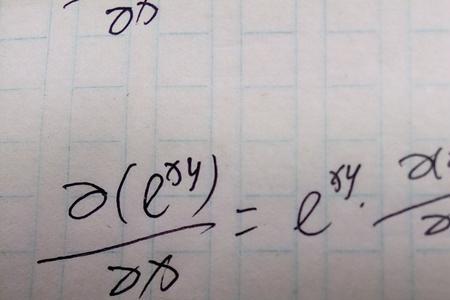 ∂x
∂(e^{xy})
/∂x = e^{xy} · ∂(
∂x